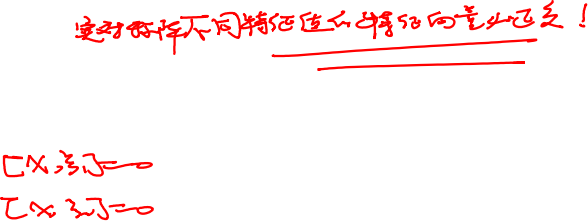 实对称阵不同特征值的特征向量必正交！
[X,ξ]=0
[X,ξ]=0